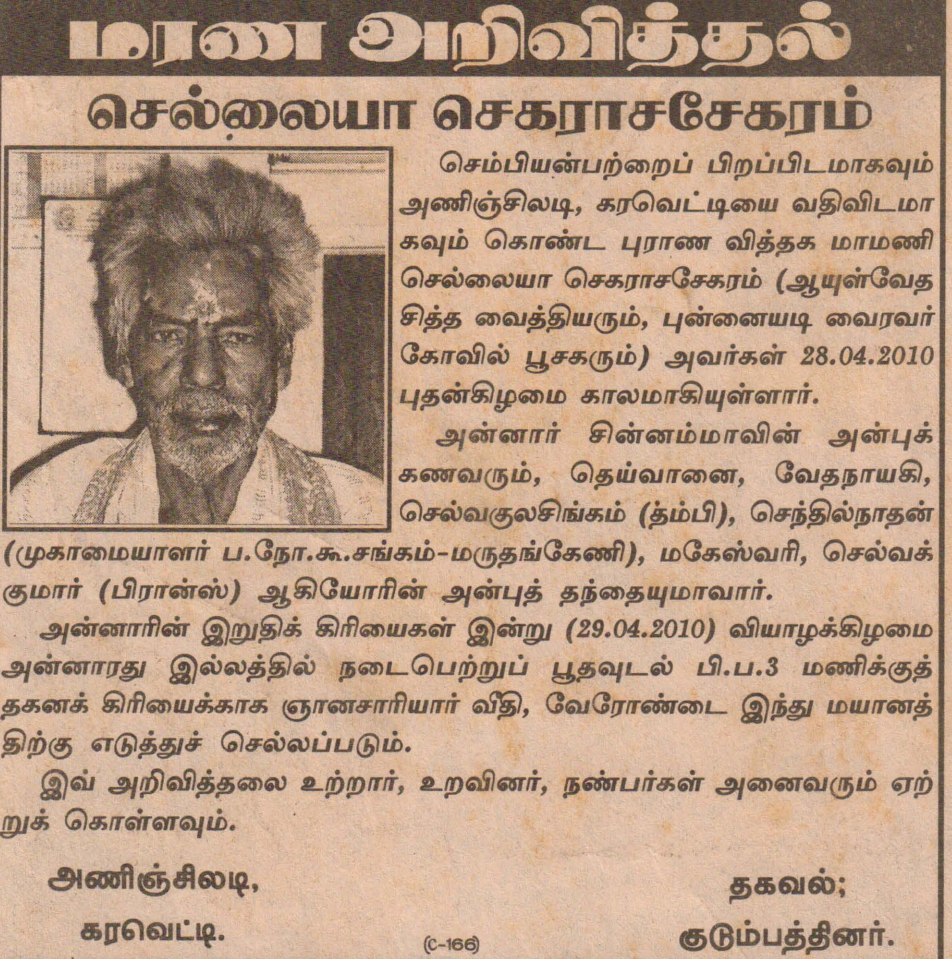 மரண அறிவித்தல்
செல்லையா செகராசசேகரம்
செம்பியன்பற்றைப் பிறப்பிடமாகவும்
அணிஞ்சிலடி, கரவெட்டியை வதிவிடமா
கவும் கொண்ட புராண வித்தக மாமணி
செல்லையா செகராசசேகரம் (ஆயுள்வேத
சித்த வைத்தியரும், புன்னையடி வைரவர்
கோவில் பூசகரும்) அவர்கள் 28.04.2010
புதன்கிழமை காலமாகியுள்ளார்.
அன்னார் சின்னம்மாவின் அன்புக்
கணவரும், தெய்வானை, வேதநாயகி,
செல்வகுலசிங்கம் (த்ம்பி), செந்தில்நாதன்
(முகாமையாளர் ப.நோ.கூ.சங்கம்-மருதங்கேணி), மகேஸ்வரி, செல்வக்
குமார் (பிரான்ஸ்) ஆகியோரின் அன்புத் தந்தையுமாவார்.
அன்னாரின் இறுதிக் கிரியைகள் இன்று (29.04.2010) வியாழக்கிழமை
அன்னாரது இல்லத்தில் நடைபெற்றுப் பூதவுடல் பி.ப.3 மணிக்குத்
தகனக் கிரியைக்காக ஞானசாரியார் வீதி, வேரோண்டை இந்து மயானத்
திற்கு எடுத்துச் செல்லப்படும்.
இவ் அறிவித்தலை உற்றார், உறவினர், நண்பர்கள் அனைவரும் ஏற்
றுக் கொள்ளவும்.
அணிஞ்சிலடி, தகவல்;
கரவெட்டி. (C-166) குடும்பத்தினர்.